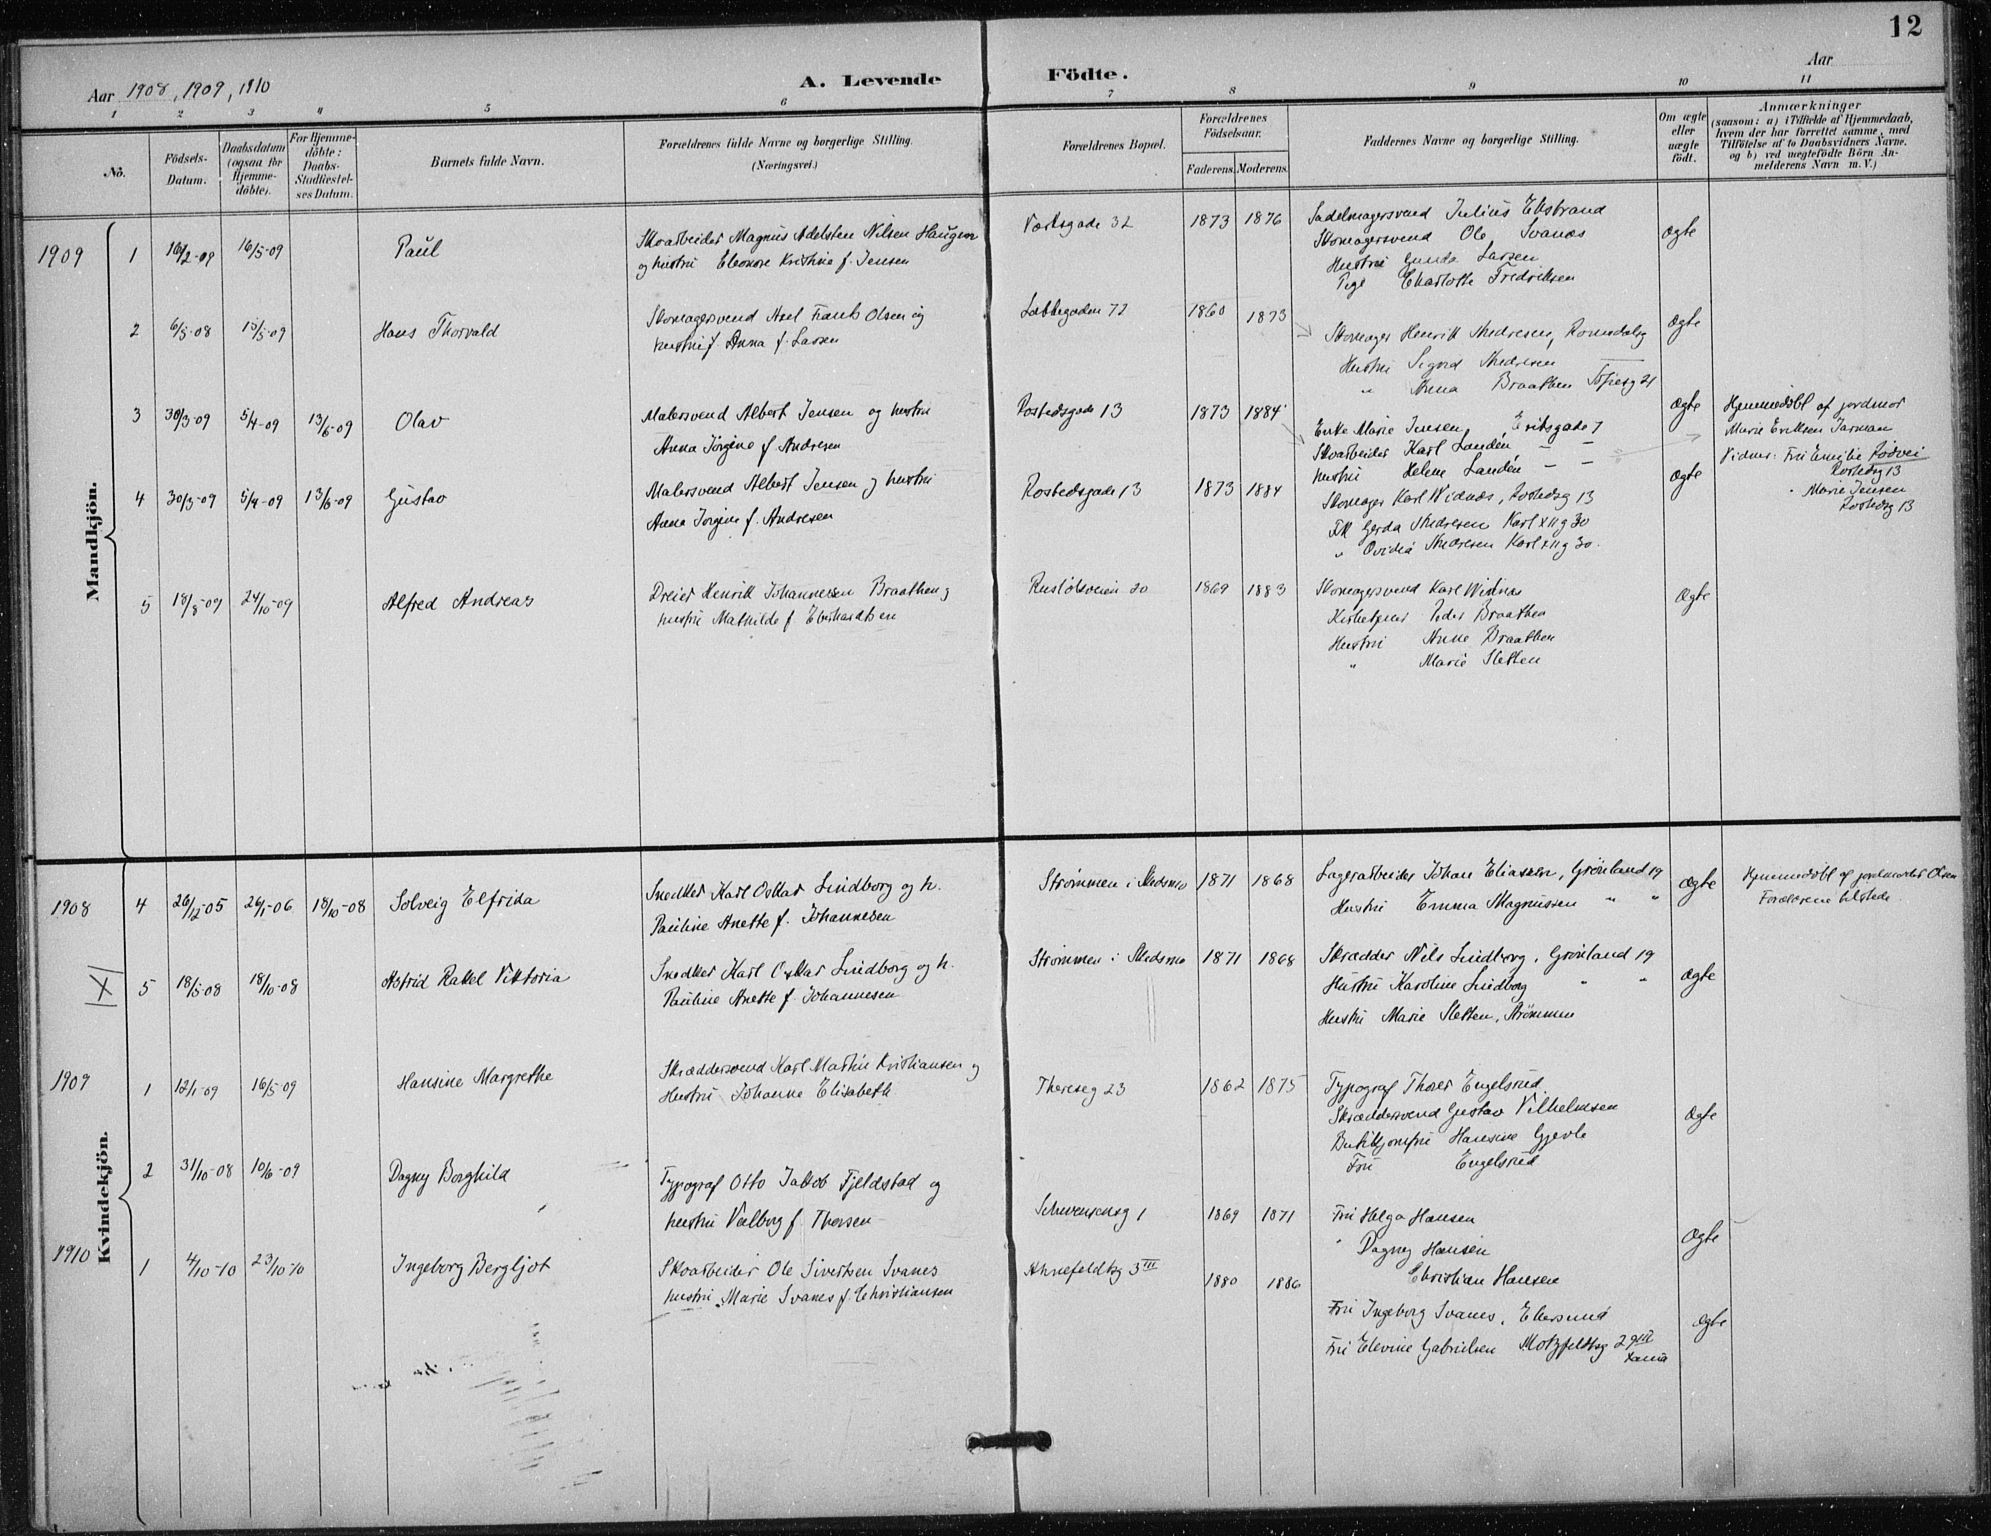 12
Aar 1908, 1909, 1910
A. Levende Födte.
Aar
1 2 3 4 5 6 7 8 9 10 11
Nö.
Födsels-Datum.
Daabsdatum (ogsaa for Hjemmedöbte).
For Hjemmedöbte: Daabs-Stadfæstelses Datum.
Barnets fulde Navn.
Forældrenes fulde Navne og borgerlige Stilling.
(Næringsvei.)
Forældrenes Bopæl.
Forældrenes Födselsaar.
Faderens. Moderens.
Faddernes Navne og borgerlige Stilling.
Om ægte eller uægte födt.
Anmærkninger
(saasom: a) i Tilfælde af Hjemmedaab, hvem der har forrettet samme, med Tilföielse af to Daabsvidners Navne, og b) ved uægtefödte Börn Anmelderens Navn m. V.)
Mandkjön.
1909 1 16/2-09 16/5-09 Paul
Skoarbeider Magnus Adelsten Nilsen Haugen
og hustru Eleonore Kristine f. Jensen
Værksgade 32 1873 1876
Sadelmagersvend Julius Ekstrand
Skomagersvend Ole Svanæs
Hustru Gunda Larsen
Pige Charlotte Fredriksen
Ægte
2 6/5-08 15/5-09 Hans Thorvald
Skomagersvend Axel Frants Olsen og
hustru f. Anna f. Larsen
Løkkegaden 72 1860 1873
Skomager Henrik Andresen, Romsdalsg
Hustru Sigrid Andresen
" Anna Braathen Tøfresg 21
Ægte
3 30/3-09 5/4-09 13/6-09 Olav
Malersvend Albert Jensen og hustru
Anna Jörgine f. Andresen
Rostedsgade 13 1873 1884
Enke Marie Jensen, Eriksgade 7
Skoarbeider Karl Landén - -
hustru Helene Landén - -
Ægte
Hjemmedöbt af jordmor
Marie Eriksen Jarman
Vidner: Frk Emilie Rödvei
Rostedsg 13
" Marie Jensen
Rostedsg 13
4 30/3-09 5/4-09 13/6-09 Gustav
Malersvend Albert Jensen og hustru
Anna Jorgine f. Andresen
Rostedsgade 13 1873 1884
Skomager Karl Widnæs, Rostedsg 13
Frk Gerda Andresen Karl XII g 30
" Ovidia Andresen Karl XII g 30.
Ægte
5 18/8-09 24/10-09 Alfred Andreas
Dreier Henrik Johannesen Braathen og
hustru Mathilde f. Eberhardtsen
Rusløkveien 20 1869 1883
Skomagersvend Karl Widnæs
Kirketjener Peder Braathen
Hustru Anne Braathen
" Marie Sletten
Ægte
Kvindekjön.
1908 4 26/12-05 26/1-06 18/10-08 Solveig Elfrida
Snedker Karl Oskar Lindborg og h.
Pauline Anette f. Johannesen
Strömmen i Skedsmo 1871 1868
Lagerarbeider Johan Eliassen, Grönland 19
Hustru Emma Magnussen " "
Ægte
Hjemmedöbt af jordmoder Olsen
Forældrene tilstede.
X
5 18/5-08 18/10-08 Astrid Rakel Viktoria
Snedker Karl Oskar Lindborg og h.
Pauline Anette f. Johannesen
Strömmen i Skedsmo 1871 1868
Skrædder Nils Lindborg, Grönland 19
Hustru Karoline Lindborg " "
Hustru Marie Sletten, Strömmen
Ægte
1909 1 12/1-09 16/5-09 Hansine Margrethe
Skræddersvend Karl Martin Kristiansen og
Hustru Johanne Elisabeth
Thereseg 23 1862 1875
Typograf Thorer Engelsrud.
Skræddersvend Gustav Vilhelmsen
Butikjomfru Hansine Gjevle
Fru Engelsrud
Ægte
2 31/10-08 10/6-09 Dagny Borghild
Typograf Otto Jakob Fjeldstad og
hustru Valborg f. Thorsen
Schwensensg 1 1869 1871
Fru Helga Hansen
" Dagny Hansen
Christian Hansen
Ægte
1910 1 4/10-10 23/10-10 Ingeborg Bergljot
Skoarbeider Ole Sivertsen Svanes
hustru Marie Svanes f. Christiansen
Ahnefeldtsg 3 III 1880 1886
Fru Ingeborg Svanes, Ekersund
Fru Elevine Gabrielsen Motzfeldtsg 29 III
Ægte